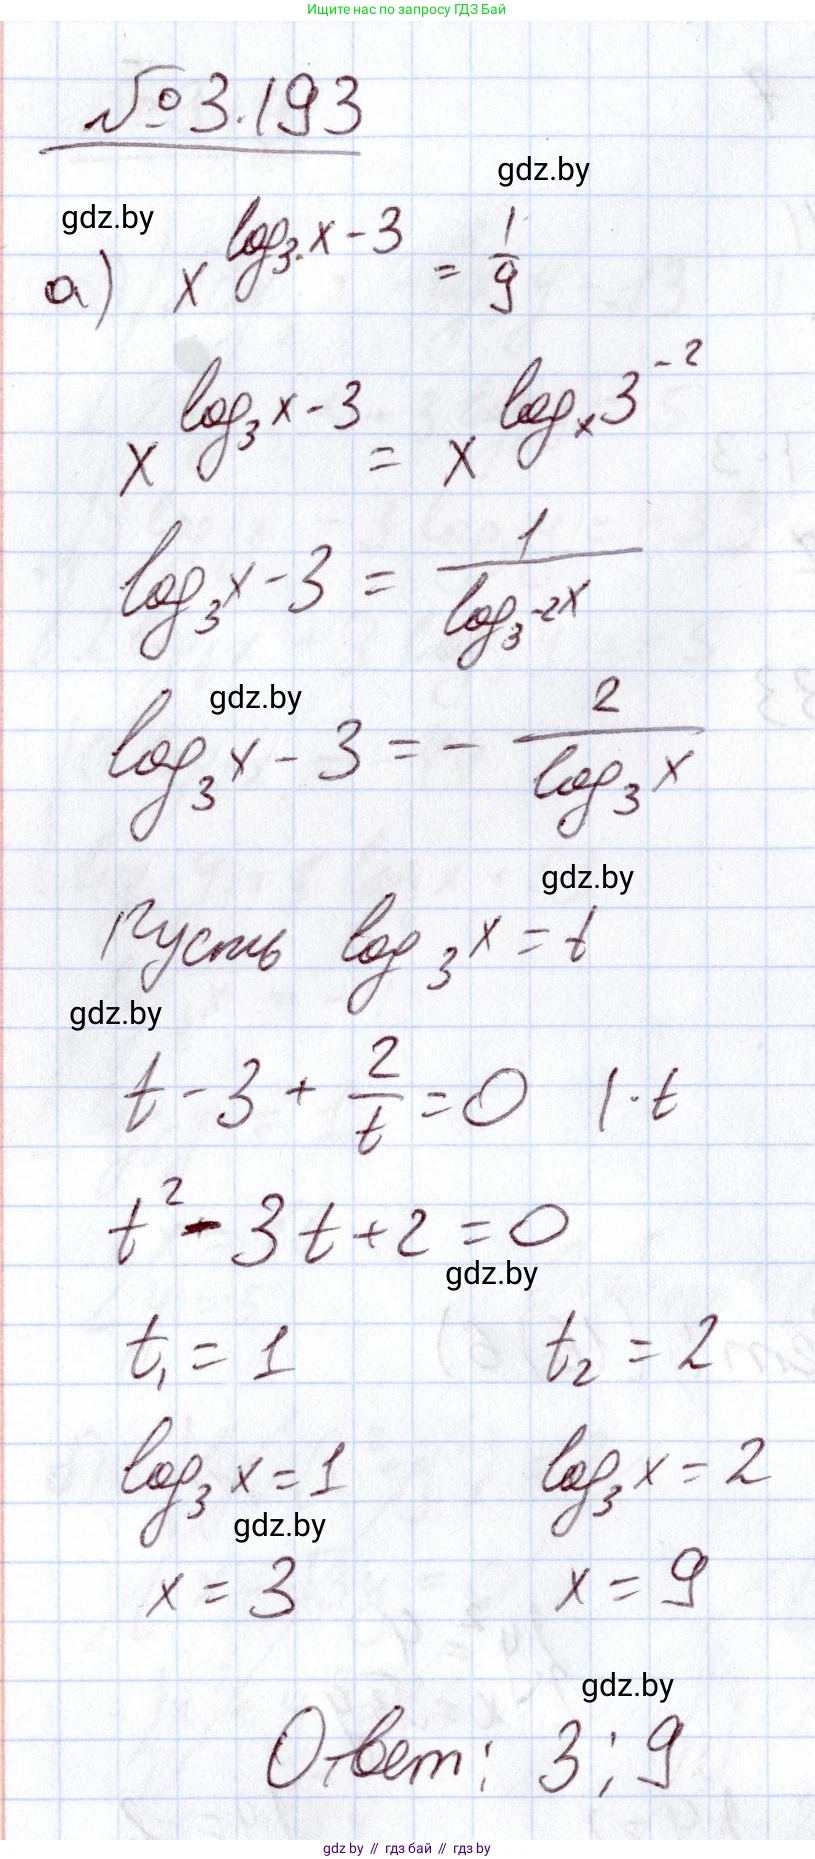 Ищите нас по запросу ГДЗ Бай
№ 3.193
gdz.by
gdz.by
а) x^(log₃ x − 3) = 1/9
x^(log₃ x − 3) = x^(logₓ 3⁻²)
log₃ x − 3 = 1/(log₃⁻² x)
gdz.by
log₃ x − 3 = − 2/(log₃ x)
gdz.by
Пусть log₃ x = t
gdz.by
t − 3 + 2/t = 0 | · t
t² − 3t + 2 = 0
gdz.by
t₁ = 1 t₂ = 2
log₃ x = 1 log₃ x = 2
gdz.by
x = 3 x = 9
gdz.by
Ответ: 3; 9
gdz by // гдз бай // gdz by